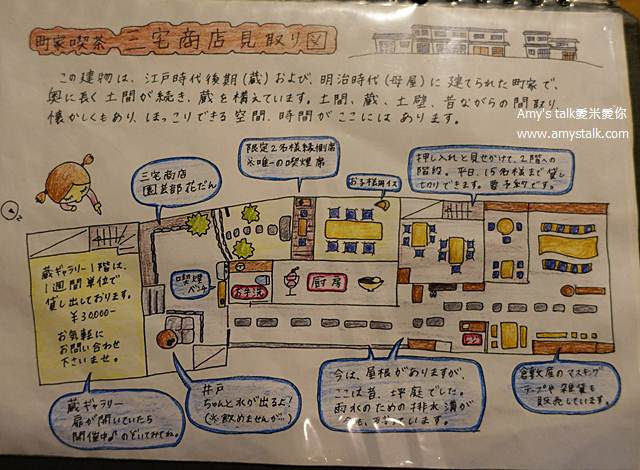 町家喫茶 三宅商店見取り図
この建物は、江戸時代後期(蔵)および、明治時代(母屋)に建てられた町家で、
奥に長く土間が続き、蔵を構えています。土間、蔵、土壁、昔ながらの間取り、
懐かしくもあり、ほっこりできる空間、時間がここにはあります。
Amy's talk愛米愛你
www.amystalk.com
三宅商店
園芸部花だん
限定2名様縁側席
※唯一の喫煙席
お子様用イス
押し入れと見せかけて、2階への
階段。平日、15名様まで貸し
切りできます。要予約です。
N
蔵ギャラリー1階は、
1週間単位で
貸し出しております。
¥30,000-
お気軽に
お問い合わせ
下さいませ。
喫煙
ベンチ
お手洗
厨房
レジ
蔵ギャラリー
扉が開いていたら
開催中♪のぞいてみてね。
井戸
ちゃんと水が出るよ!
(※飲めませんが…)
今は、屋根がありますが、
ここは昔、坪庭でした。
雨水のための排水溝が
います。
倉敷意匠のマスキング
テープや雑貨も
販売しています。